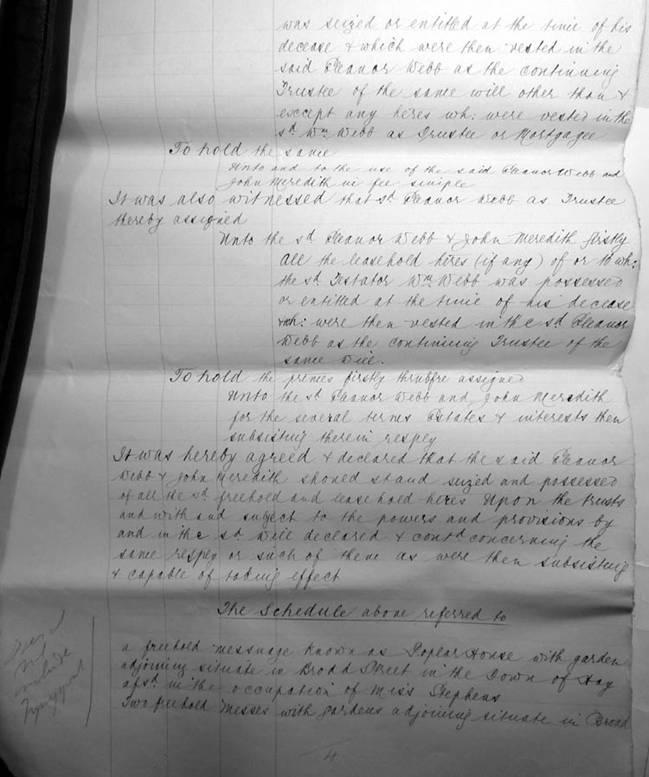 was seized or entitled at the time of his
decease & which were then vested in the
said Eleanor Webb as the continuing
Trustee of the same will other than &
except any heres wh: were vested in the
sd. Wm Webb as Trustee or Mortgagee
To hold the same
Unto and to the use of the said Eleanor Webb and
John Meredith in fee simple
It was also witnessed that sd. Eleanor Webb as Trustee
thereby assigned
Unto the sd. Eleanor Webb & John Meredith firstly
All the leasehold heres (if any) of or to wh:
the sd. Testator Wm Webb was possessed
or entitled at the time of his decease
& wh: were then vested in the sd. Eleanor
Webb as the continuing Trustee of the
same Will.
To hold the premes firstly thrnbfre assigned
Unto the sd. Eleanor Webb and John Meredith
for the several terms Estates & interests then
subsisting therein respey
It was hereby agreed & declared that the said Eleanor
Webb & John Meredith should stand seized and possessed
of all the sd. freehold and leasehold heres Upon the trusts
and with and subject to the powers and provisions by
and in the sd. Will declared & contd concerning the
same respey or such of them as were then subsisting
& capable of taking effect
The Schedule above referred to
a freehold messuage known as Poplar House with garden
adjoining situate in Broad Street in the Town of Hay
afsd. in the occupation of Miss Stephens
Two freehold messes with gardens adjoining situate in Broad
4